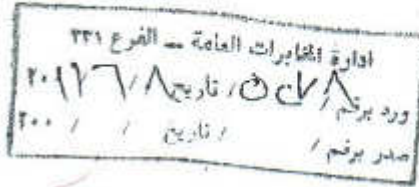 ادارة المخابرات العامة – الفرع ٣٣١
ورد برقم / تاريخ ٨ / ٦ /
صدر برقم / / تاريخ / / ٢٠٠